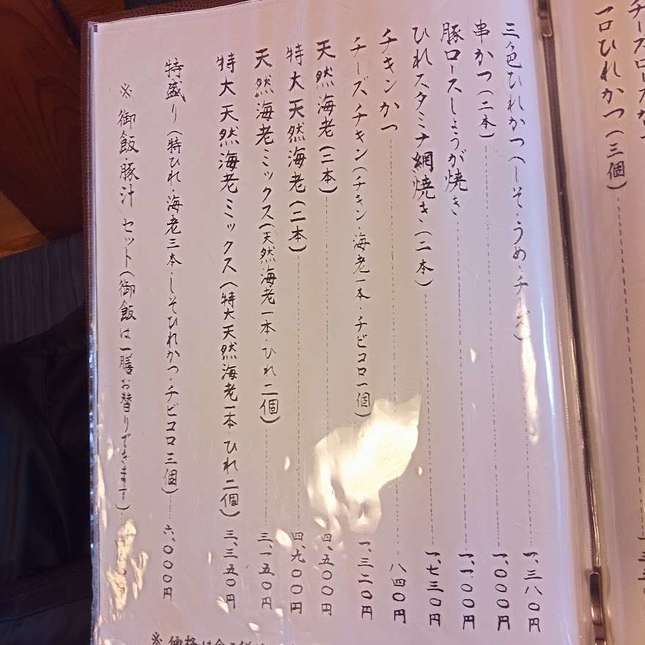 チーズロースかつ
一口ひれかつ(三個)
三色ひれかつ(しそ・うめ・チーズ) 一、三八〇円
串かつ(二本) 一、〇〇〇円
豚ロースしょうが焼き 一、一〇〇円
ひれスタミナ網焼き(二本) 一、七三〇円
チキンかつ 八四〇円
チーズチキン(チキン・海老一本・チビコロ一個) 一、三二〇円
天然海老(二本) 四、五〇〇円
特大天然海老(二本) 四、九〇〇円
天然海老ミックス(天然海老一本・ひれ二個) 三、一五〇円
特大天然海老ミックス(特大天然海老一本 ひれ二個) 三、三五〇円
特盛り(特ひれ・海老三本・しそひれかつ・チビコロ三個) 六、〇〇〇円
※御飯豚汁セット(御飯は一膳お替りできます)
※価格は